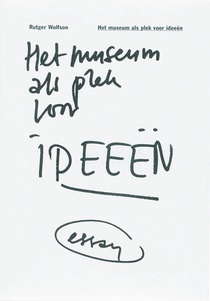 Rutger Wolfson Het museum als plek voor ideeën
Het museum
als plek
voor
IDEEËN
essay